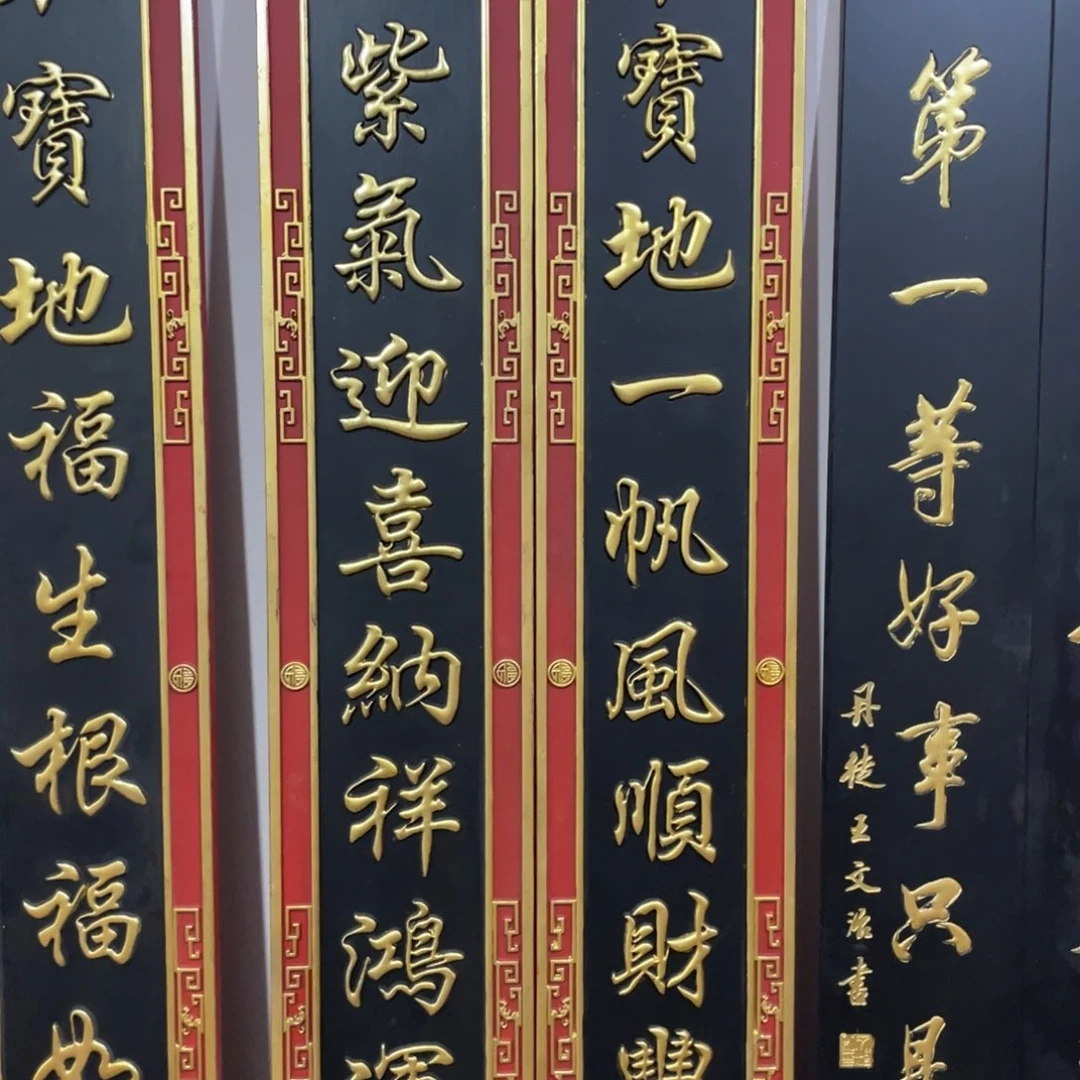 第一等好事只是
丹徒王文治書
寶地一帆風順財豐
紫氣迎喜納祥鴻運
寶地福生根福如